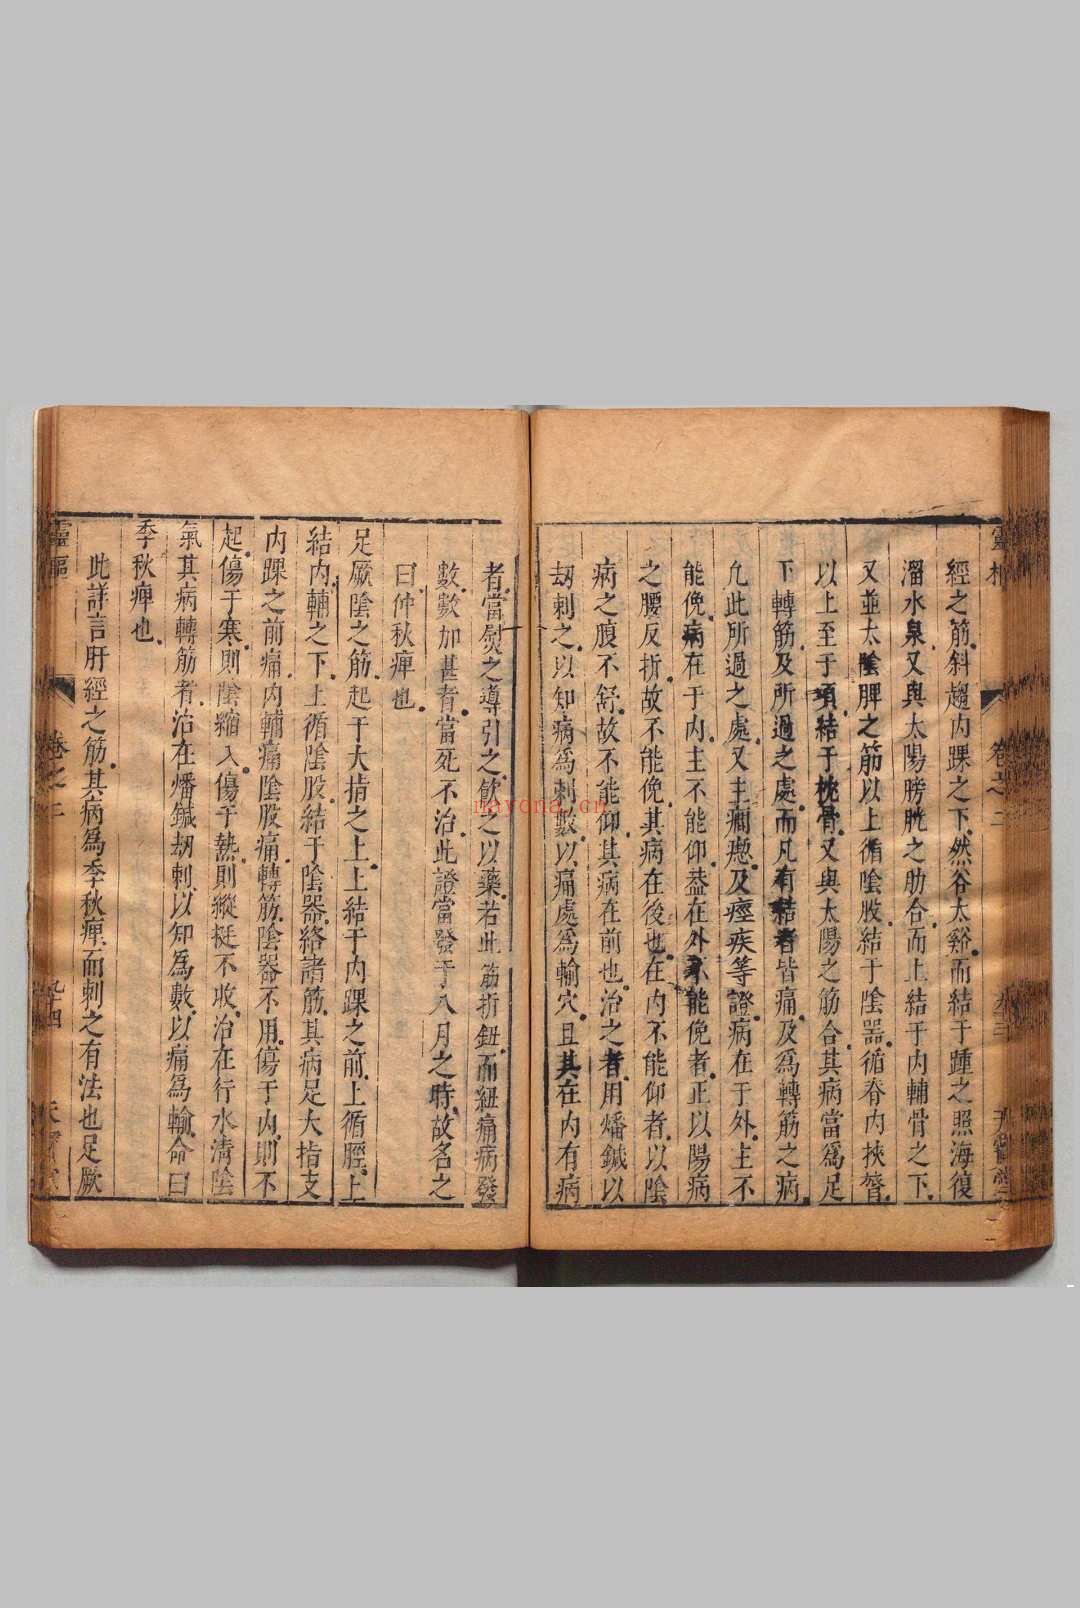 經之筋斜趨内踝之下然谷太谿而結于踵之照海復
溜水泉又與太陽膀胱之肋合而上結于内輔骨之下
又並太陰脾之筋以上循陰股結于陰器循脊内挾膂
以上至于項結于枕骨又與太陽之筋合其病當爲足
下轉筋及所過之處而凡有結者皆痛及爲轉筋之病
凢此所過之處又主癎瘛及痙疾等證病在于外主不
能俛病在于内主不能仰葢在外不能俛者正以陽病
之腰反折故不能俛其病在後也在内不能仰者以陰
病之腹不舒故不能仰其病在前也治之者用燔鍼以
刼刺之以知病爲刺數以痛處爲輸穴且其在内有病
者當熨之導引之飲之以藥若此筋折鈕而紐痛病發
數數加甚者當死不治此證當發于八月之時故名之
曰仲秋痺也
足厥陰之筋起于大指之上上結于内踝之前上循脛上
結内輔之下上循陰股結于陰器絡諸筋其病足大指支
内踝之前痛内輔痛陰股痛轉筋陰器不用傷于内則不
起傷于寒則陰縮入傷于熱則縱挺不收治在行水清陰
氣其病轉筋者治在燔鍼刼刺以知爲數以痛爲輸命曰
季秋痺也
此詳言肝經之筋其病爲季秋痺而刺之有法也足厥
靈樞
卷之二
九十四
nayona.cn